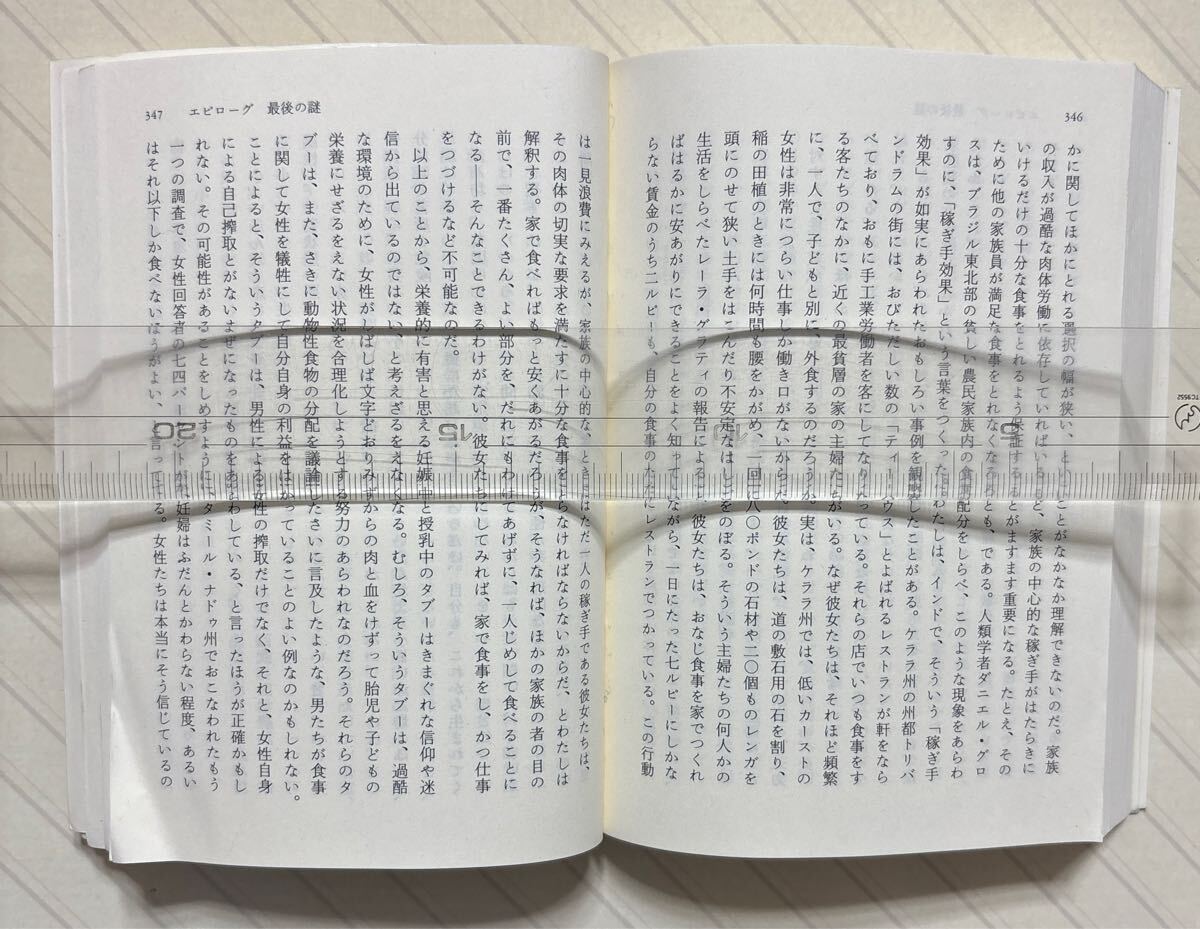 346
かに関してほかにとれる選択の幅が狭い、ということがなかなか理解できないのだ。家族
の収入が過酷な肉体労働に依存していればいるほど、家族の中心的な稼ぎ手がはたらきに
いけるだけの十分な食事をとれるよう保証することがますます重要になる。たとえ、その
ために他の家族員が満足な食事をとれなくなろうとも、である。人類学者ダニエル・グロ
スは、ブラジル東北部の貧しい農民家族内の食事配分をしらべ、このような現象をあらわ
すのに、「稼ぎ手効果」という言葉をつくった。わたしは、インドで、そういう「稼ぎ手
効果」が如実にあらわれたおもしろい事例を観察したことがある。ケララ州の州都トリバ
ンドラムの街には、おびただしい数の「ティー・ハウス」とよばれるレストランが軒をなら
べており、おもに手工業労働者を客にしてなりたっている。それらの店でいつも食事をす
る客たちのなかに、近くの最貧層の家の主婦たちがいる。なぜ彼女たちは、それほど頻繁
に、一人で、子どもと別に、外食するのだろうか。実は、ケララ州では、低いカーストの
女性は非常につらい仕事しか働き口がないからだ。彼女たちは、道の敷石用の石を割り、
稲の田植のときには何時間も腰をかがめ、一回に八〇ポンドの石材や二〇個ものレンガを
頭にのせて狭い土手をはこんだり不安定なはしごをのぼる。そういう主婦たちの何人かの
生活をしらべたレーラ・グラティの報告によると、彼女たちは、おなじ食事を家でつくれ
ばはるかに安あがりにできることをよく知っていながら、一日にたった七ルピーにしかな
らない賃金のうち二ルピーも、自分の食事のためにレストランでつかっている。この行動
347 エピローグ 最後の謎
は一見浪費にみえるが、家族の中心的な、ときにはただ一人の稼ぎ手である彼女たちは、
その肉体の切実な要求を満たすに十分な食事をとらなければならないからだ、とわたしは
解釈する。家で食べればもっと安くあがるだろうが、そうなれば、ほかの家族の者の目の
前で、一番たくさん、よい部分を、だれにもわけてあげずに、一人じめして食べることに
なる――そんなことできるわけがない。彼女たちにしてみれば、家で食事をし、かつ仕事
をつづけるなど不可能なのだ。
以上のことから、栄養的に有害と思える妊娠中と授乳中のタブーはきまぐれな信仰や迷
信から出ているのではない、と考えざるをえなくなる。むしろ、そういうタブーは、過酷
な環境のために、女性がしばしば文字どおりみずからの肉と血をけずって胎児や子どもの
栄養にせざるをえない状況を合理化しようとする努力のあらわれなのだろう。それらのタ
ブーは、また、さきに動物性食物の分配を議論したさいに言及したような、男たちが食事
に関して女性を犠牲にして自分自身の利益をはかっていることのよい例なのかもしれない。
ことによると、そういうタブーは、男性による女性の搾取だけでなく、それと、女性自身
による自己搾取とがないまぜになったものをあらわしている、と言ったほうが正確かもし
れない。その可能性があることをしめすように、タミール・ナドゥ州でおこなわれたもう
一つの調査で、女性回答者の七四パーセントが、妊婦はふだんとかわらない程度、あるい
はそれ以下しか食べないほうがよい、と言ってる。女性たちは本当にそう信じているの
20
15
10
5
TC9552